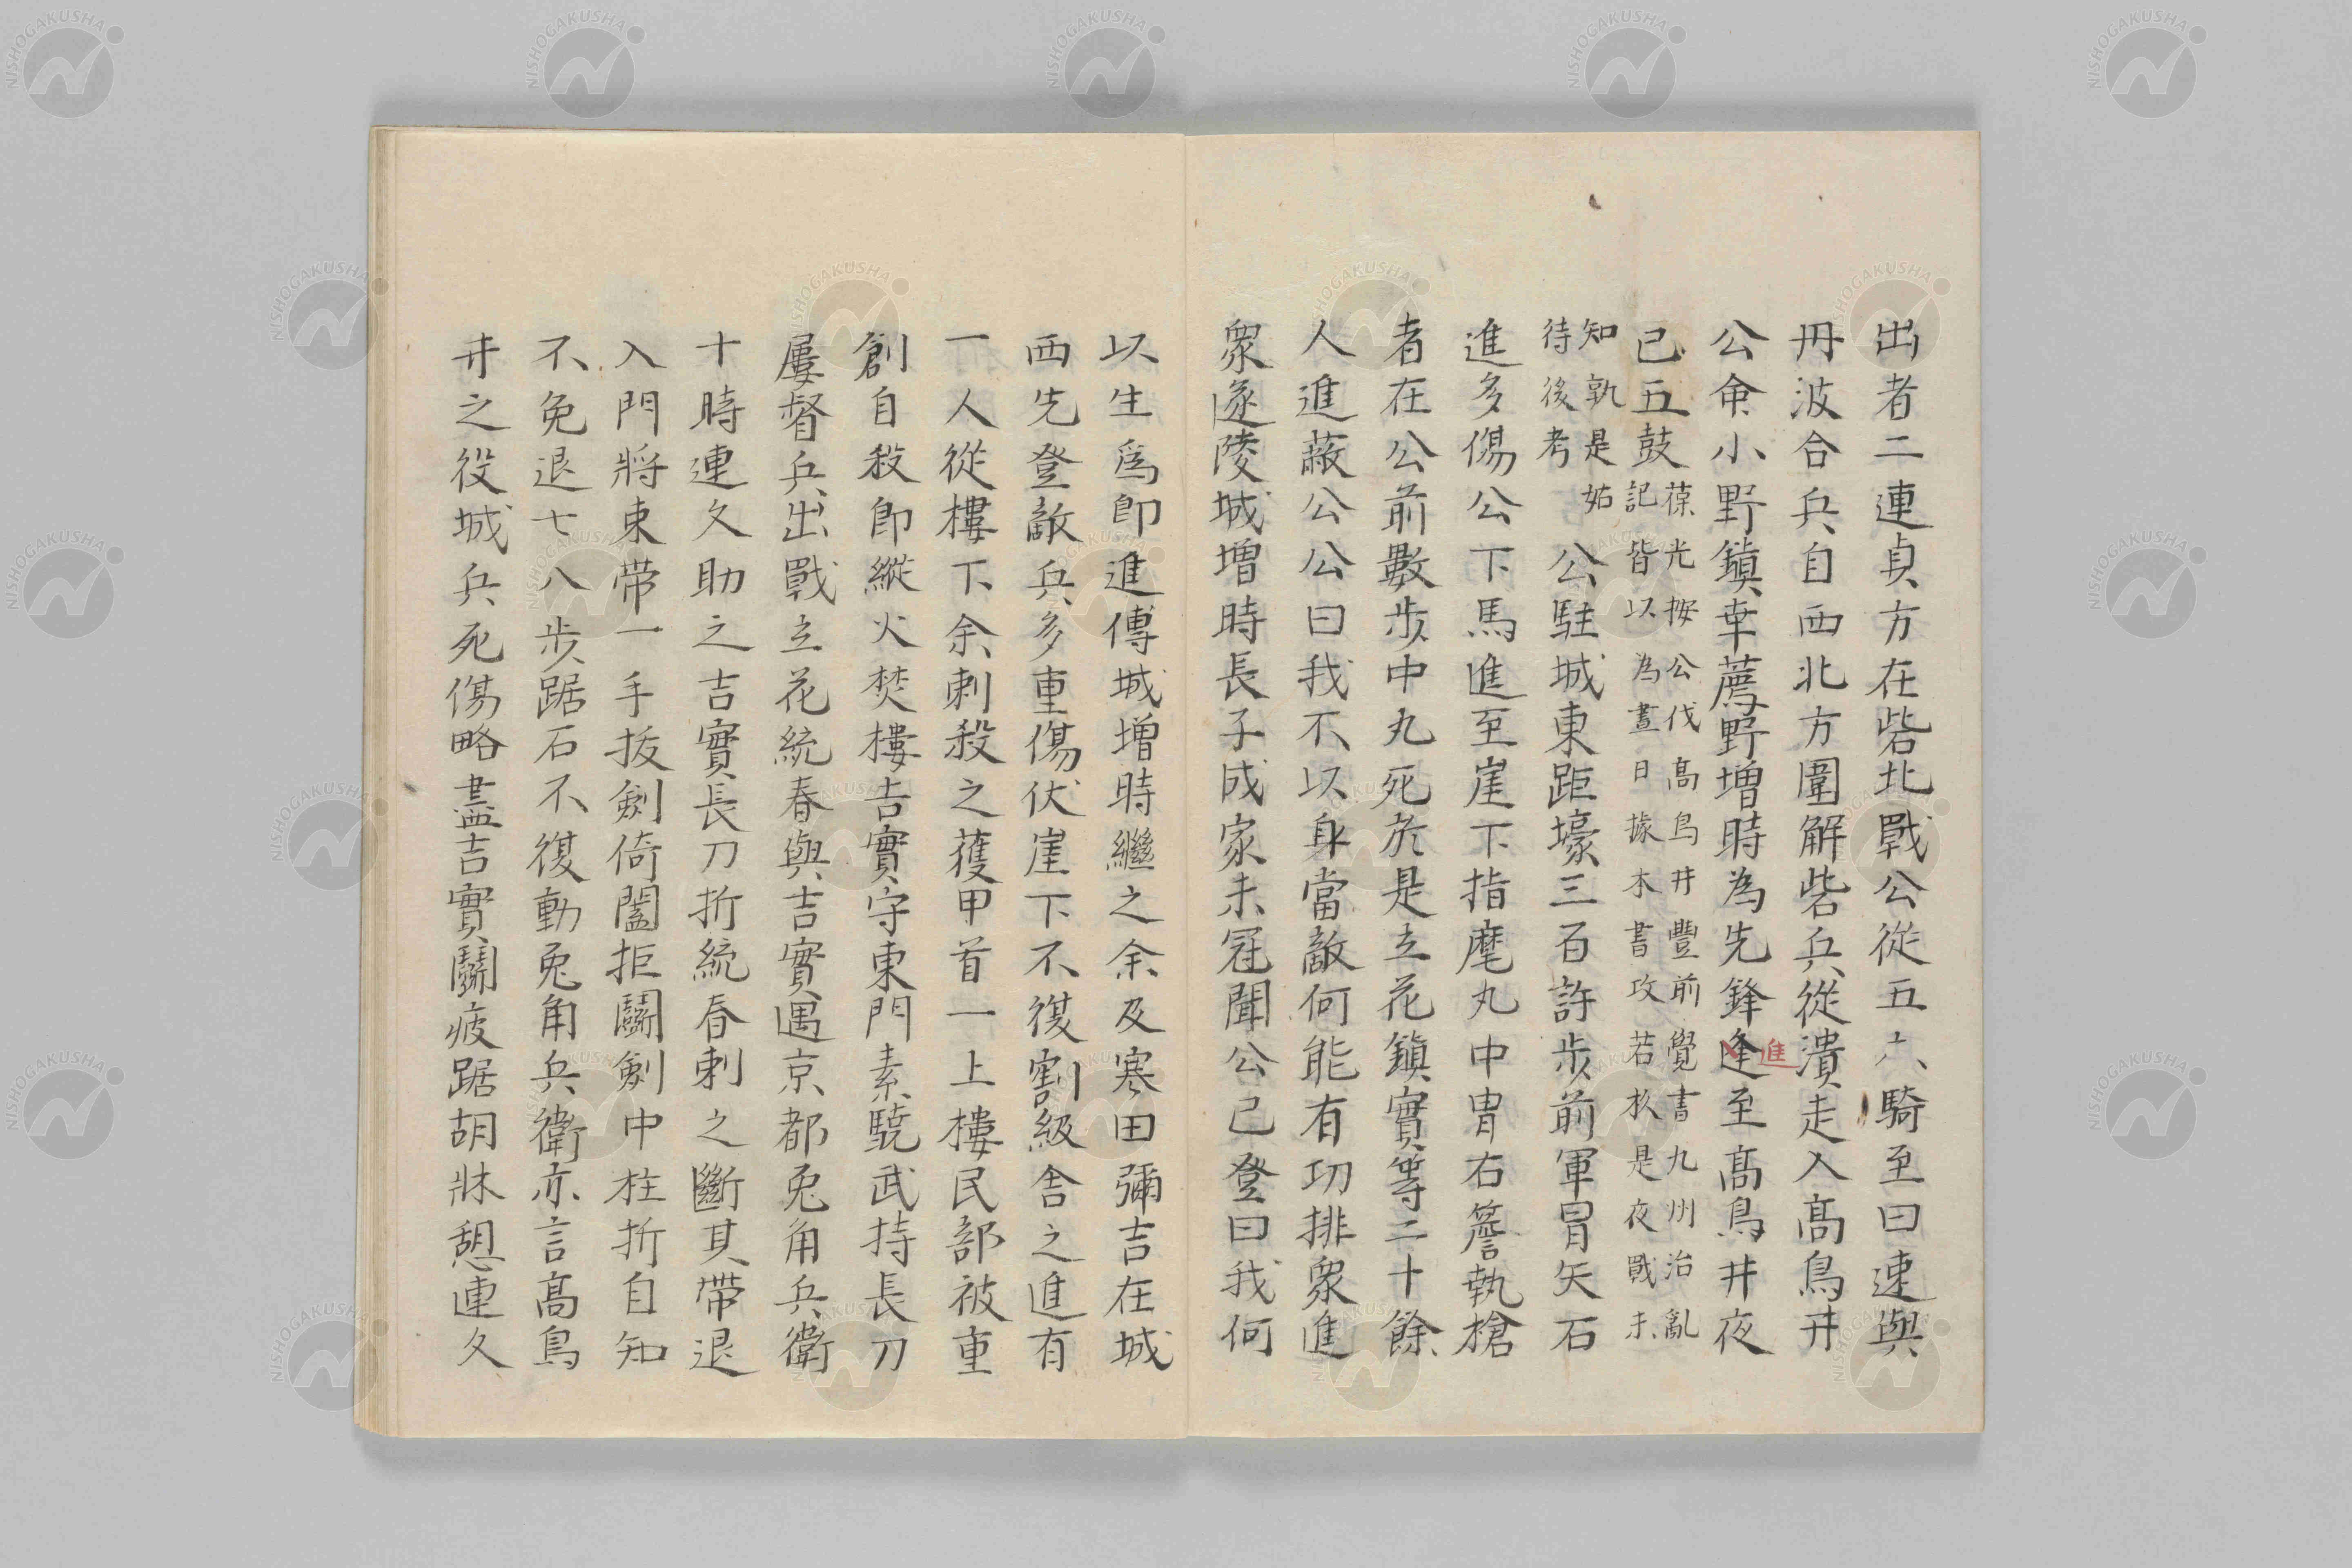 出者二連貞方在砦北戰公從五六騎至曰速與
丹波合兵自西北方圍解砦兵從潰走入高鳥井
公命小野鎮幸薦野增時為先鋒逢至高鳥井夜
進
已五鼓
葆光按公伐高鳥井豐前覺書九州治亂
記皆以為晝日據木書攻若杦是夜戰未
知孰是姑
待後考
公駐城東距壕三百許步前軍冒矢石
進多傷公下馬進至崖下指麾丸中冑右簷執槍
者在公前數步中丸死於是立花鎮實等二十餘
人進蔽公公曰我不以身當敵何能有功排衆進
衆遂陵城增時長子成家未冠聞公已登曰我何
以生爲即進傳城增時繼之余及寒田彌吉在城
西先登敵兵多重傷伏崖下不復割級舍之進有
一人從樓下余刺殺之獲甲首一上樓民部被重
創自殺即縱火焚樓吉實守東門素驍武持長刀
屢督兵出戰立花統春與吉實遇京都兎角兵衛
十時連久助之吉實長刀折統春刺之斷其帶退
入門將束帶一手拔劍倚闔拒鬭劍中柱折自知
不免退七八步踞石不復動兎角兵衛亦言高鳥
井之役城兵死傷略盡吉實鬭疲踞胡牀憩連久